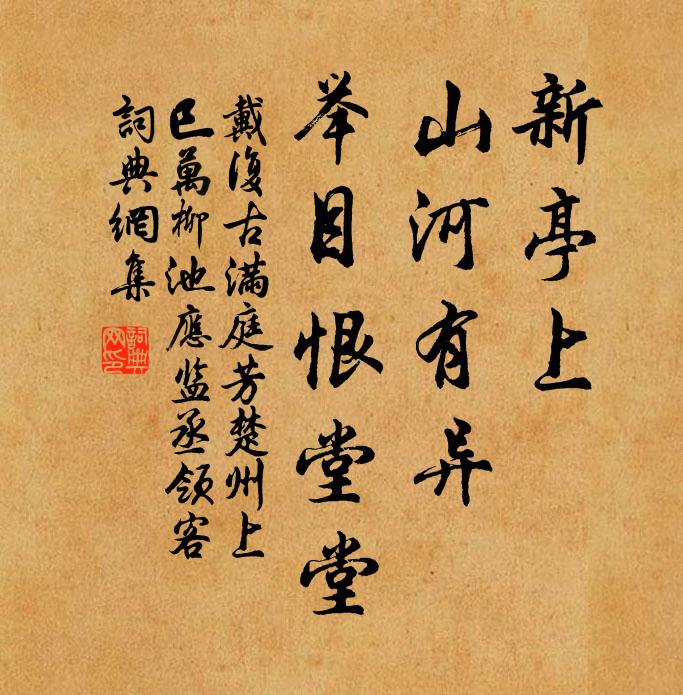 新亭上
山河有异
举目恨堂堂
戴復古满庭芳楚州上
巳萬柳池應监丞领客
詞典網集
詞典网印